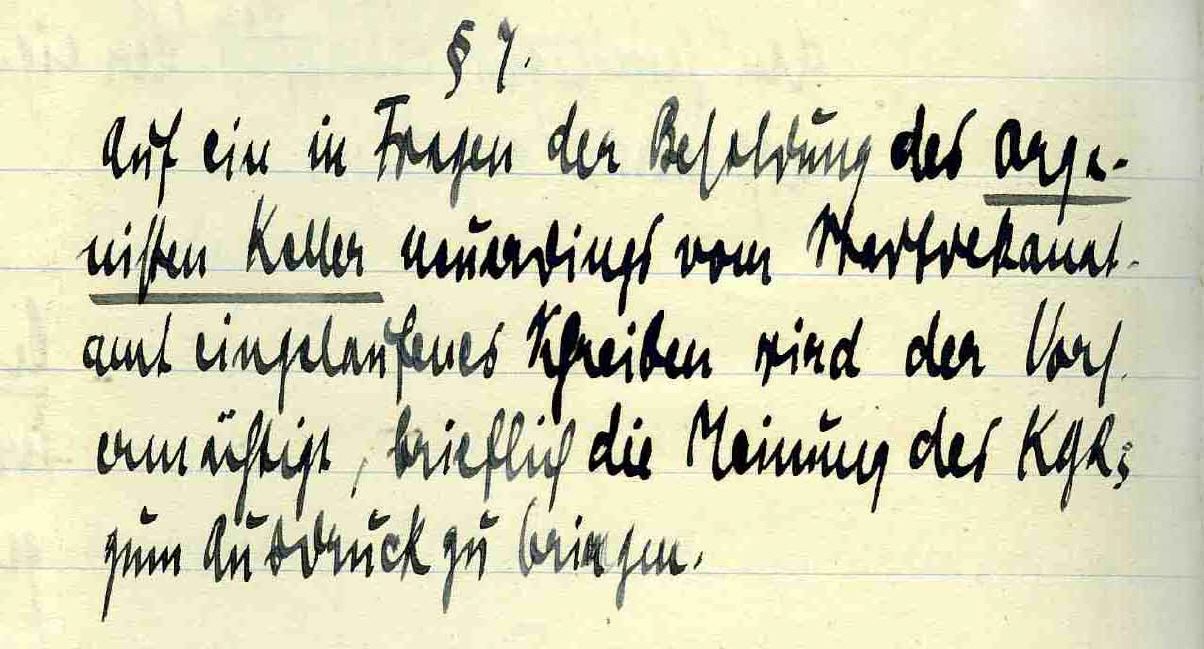 § 7.
Auf ein in Fragen der Besoldung des Orga-
nisten Keller neuerdings vom Stadtdekanat-
amt eingelaufenes Schreiben wird der Vors.
ermächtigt, brieflich die Meinung des KGR's
zum Ausdruck zu bringen.